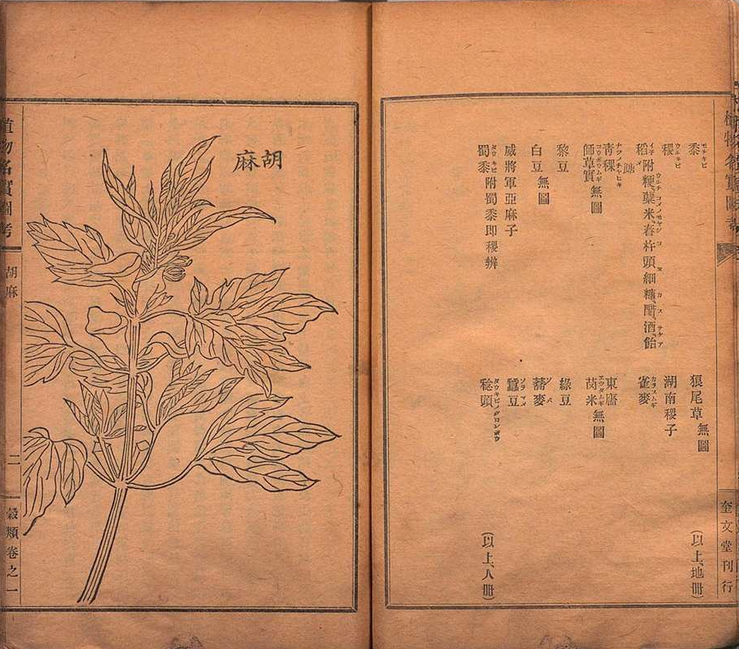 植物名實圖考
奎文堂刊行
黍 モチキビ
狼尾草 無圖
(以上地冊)
稷 ウルキビ
湖南稷子
稻
雀麥 カラスムギ
青稞
東廧
師草實 無圖
茵米 無圖
黎豆
綠豆
白豆 無圖
蕎麥 ソバ
威將軍 亞麻子
蠶豆 ソラマメ
蜀黍附蜀黍即稷辨
稔頭
(以上人冊)
胡麻
植物名實圖考
胡麻
二
穀類卷之一